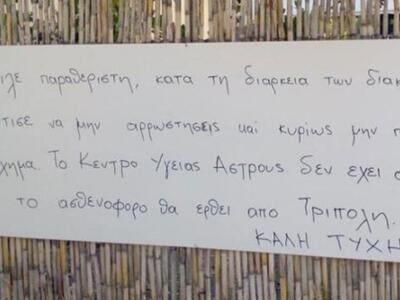 ιλε παραθεριστη, κατα τη διαρκεια των διακ
τισε να μην αρρωστησεις και κυριως μην π
χημα. Το Κεντρο Υγειας Αστρους δεν εχει
το ασθενοφορο θα ερθει απο Τριπολη.
ΚΑΛΗ ΤΥΧΗ